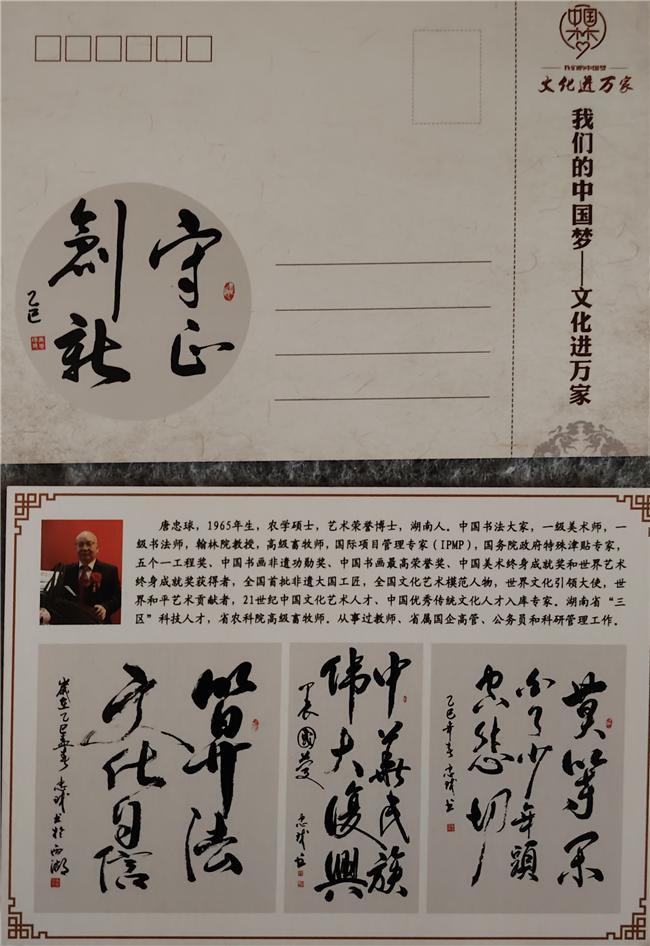 中国梦
我们的中国梦
文化进万家
我们的中国條——文化进万家
守正
創新
乙巳
唐忠球，1965年生，农学硕士，艺术荣誉博士，湖南人。中国书法大家，一级美术师，一
级书法师，翰林院教授，高级畜牧师，国际项目管理专家（IPMP），国务院政府特殊津贴专家，
五个一工程奖、中国书画非遗功勋奖、中国书画最高荣誉奖、中国美术终身成就奖和世界艺术
终身成就奖获得者，全国首批非遗大国工匠，全国文化艺术模范人物，世界文化引领大使，世
界和平艺术贡献者，21世纪中国文化艺术人才、中国优秀传统文化人才入库专家。湖南省“三
区”科技人才，省农科院高级畜牧师。从事过教师、省属国企高管、公务员和科研管理工作。
算法
文化自信
歲在乙巳春 忠球书於西湖
中華民族
伟大復興
圆夢
忠球书
莫等閑
白了少年頭
空悲切
乙巳年春 忠球书